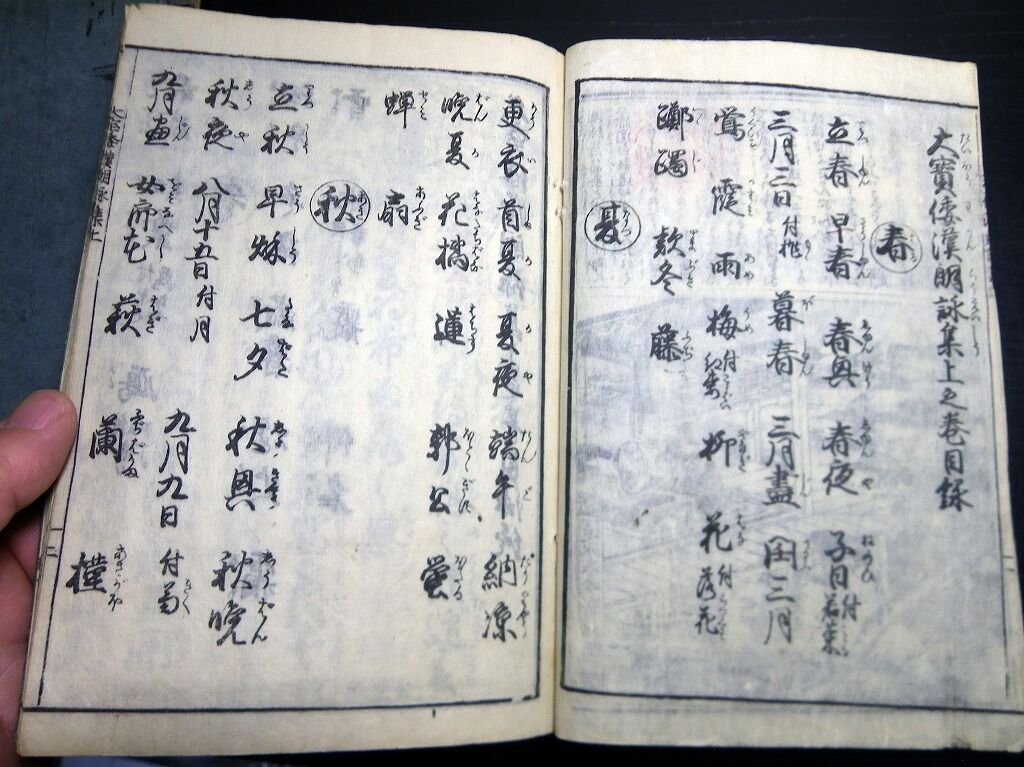 大寶倭漢朗詠集上之巻目録
春
立春 早春 春興 春夜 子日付若菜
三月三日付桃 暮春 三月盡 閏三月
鶯 霞 雨 梅付紅梅 柳 花付落花
躑躅 款冬 藤
夏
更衣 首夏 夏夜 端午 納凉
晩夏 花橘 蓮 郭公 螢
蝉 扇
秋
立秋 早秋 七夕 秋興 秋晩
秋夜 八月十五日付月 九月九日付菊
九月盡 女郎花 萩 蘭 槿